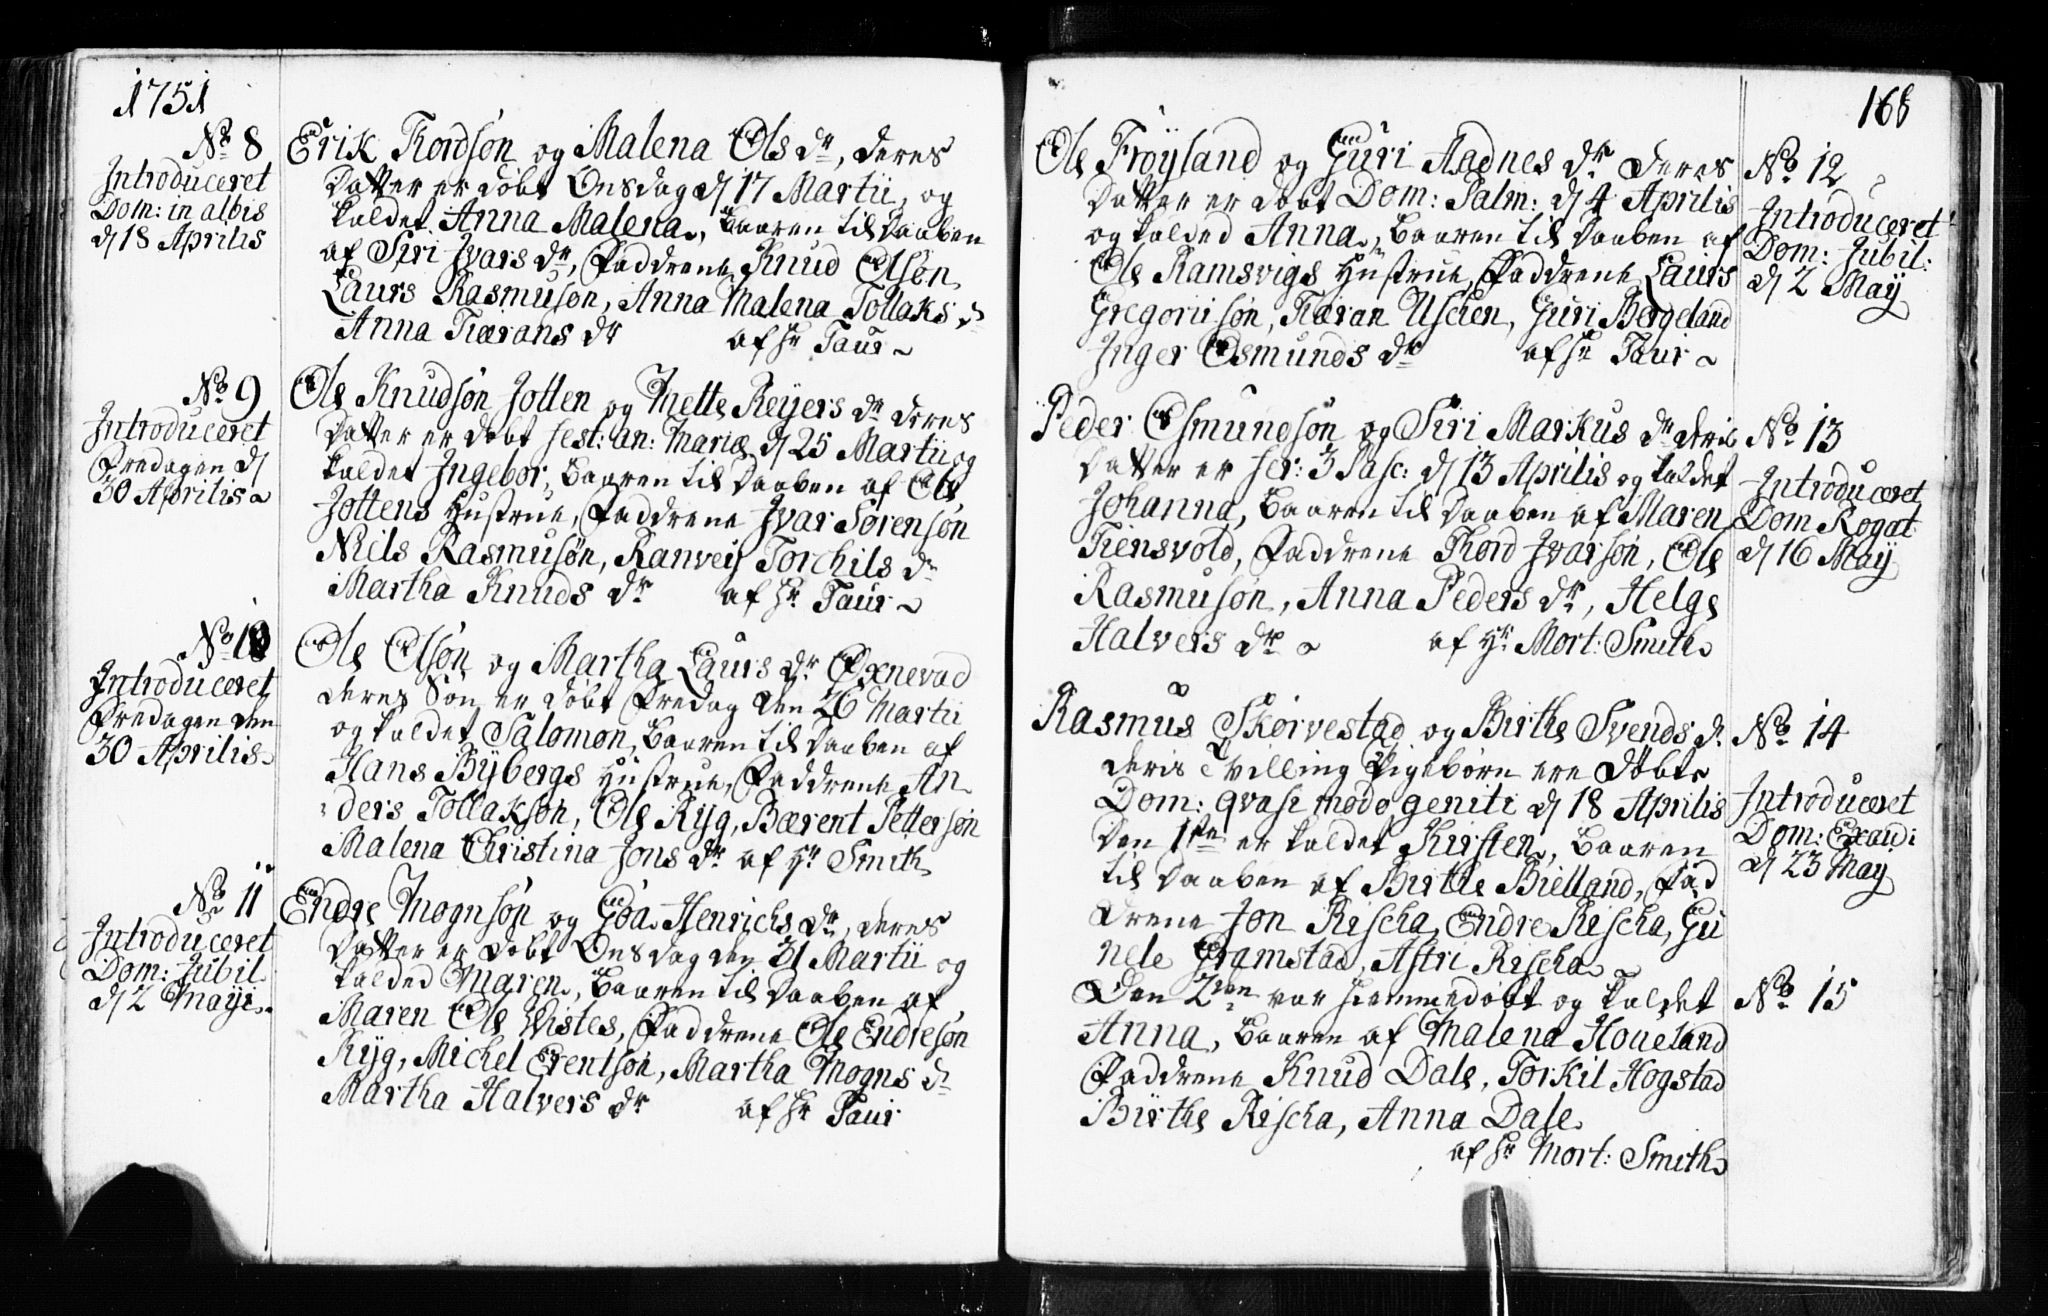 1751
No 8
Introduceret
Dom: in albis
d 18 Aprilis
Erik Tordsøn og Malena Ols dr, deres
Datter er døbt Onsdag d 17 Martii, og
kaldet Anna Malena, baaren til Daaben
af Siri Ivars dr, Faddrene Knud Olsøn
Laurs Rasmusøn, Anna Malena Tollaks d
Anna Tiærans dr af Hr Taur
No 9
Introduceret
Fredagen d
30 Aprilis
Ole Knudsøn Jotten og Mette Reyers dr deres
Datter er døbt fest: an: Mariæ d 25 Martii og
kaldet Ingebor, baaren til Daaben af Ole
Jottens Hustrue, Faddrene Ivar Sørensøn
Niels Rasmusøn, Ranveig Torchils dr
Martha Knuds dr af Hr Taur
No 10
Introduceret
Fredagen den
30 Aprilis
Ole Olsøn og Martha Laurs dr Oxnevad
deres Søn er døbt Fredag den 26 Martii
og kaldet Salomon, baaren til Daaben af
Hans Bybergs Hustrue, Faddrene An
ders Tollaksøn, Ole Ryg, Bærent Pettersøn
Malena Christina Jons dr af Hr Smith
No 11
Introduceret
Dom: Jubil
d 2 Maji
Endre Mognsøn og Goa Henrichs dr, deres
Datter er døbt Onsdag den 31 Martii og
kalded Maren, baaren til Daaben af
Maren Ole Vistes, Faddrene Ole Endresøn
Ryg, Michel Erentsøn, Martha Mogns d
Martha Halvers dr af Hr Taur
168
Ole Frøyland og Guri Aadnes dr deres
Datter er døbt Dom: Palm: d 4 Aprilis
og kalded Anna, baaren til Daaben af
Ole Ramsvigs Hustrue, Faddrene Laurs
Gregoriisøn, Tiæran Uscien, Guri Bergeland
Inger Osmunds dr af Hr Taur
No 12
Introduceret
Dom: Jubil:
d 2 May
Peder Osmundsøn og Siri Markus dr deris
Datter er fer: 3 Pasc: d 13 Aprilis og kaldet
Johanna, baaren til Daaben af Maren
Tiensvold, Faddrene Tord Ivarsøn, Ole
Rasmusøn, Anna Peders dr, Helge
Halvers dr af Hr Mort: Smith
No 13
Introduceret
Dom Rogat
d 16 May
Rasmus Skørvestad og Birthe Svends d.
deris Tvilling Pigebørn ere døbte
Dom: qvasi modo geniti d 18 Aprilis
Den 1ste er kaldet Kirsten, baaren
til Daaben af Birthe Bielland, Fad
drene Jon Rischa, Endre Rischa, Gu
nele Gramstad, Astri Rischa
No 14
Introduceret
Dom: Exaudi
d 23 May
Den 2den var hiemmedøbt og kaldet
Anna, baaren af Malena Houeland
Faddrene Knud Dale, Torkil Hogstad
Birthe Rischa, Anna Dale
af Hr Mort: Smith
No 15